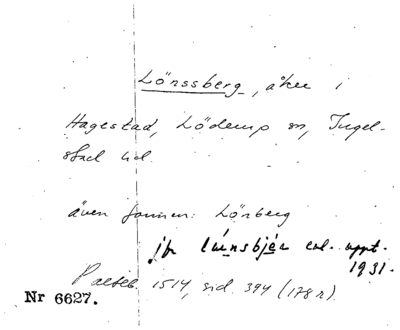 Lönssberg, åker i
Hagestad, Löderup sn, Ingel-
stad hd.
även formen: Lönberg
jfr lúnsbjér enl. uppt.
1931.
1514, sid. 394 (178 r).
Nr 6627.